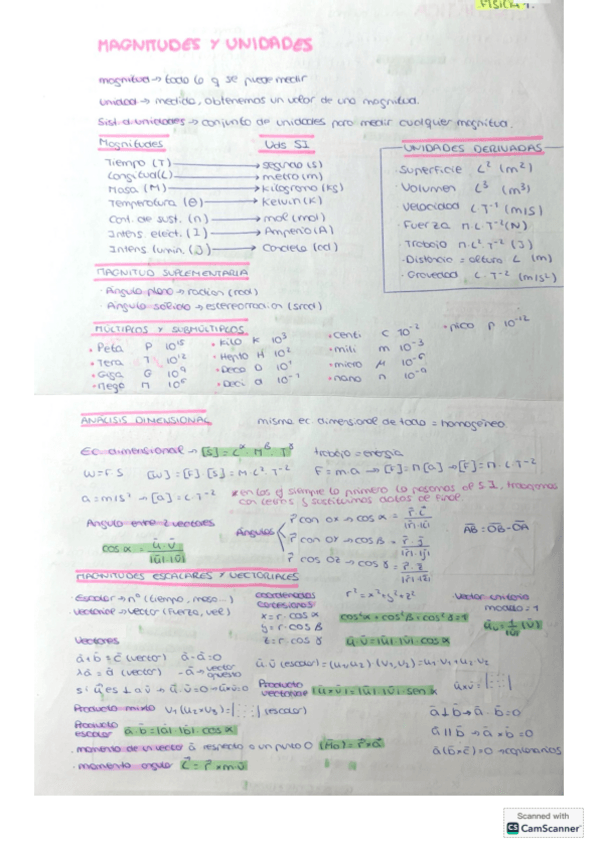 FISICA 1.
MAGNITUDES Y UNIDADES
magnitud → todo lo q se puede medir
unidad → medida, obtenemos un valor de una magnitud.
Sist. d unidades → conjunto de unidades para medir cualquier magnitud.
Magnitudes Uds SI
Tiempo (T) → segundo (s)
Longitud (L) → metro (m)
Masa (M) → kilogramo (kg)
Temperatura (θ) → Kelvin (K)
Cant. de sust. (n) → mol (mol)
Intens. elect. (I) → Amperio (A)
Intens. lumin. (J) → Candela (cd)
UNIDADES DERIVADAS
· Superficie L² (m²)
· Volumen L³ (m³)
· Velocidad L T⁻¹ (m/s)
· Fuerza M L T⁻² (N)
· Trabajo M L² T⁻² (J)
· Distancia = altura L (m)
· Gravedad L T⁻² (m/s²)
MAGNITUD SUPLEMENTARIA
· Ángulo plano → radian (rad)
· Ángulo sólido → estereorradian (srad)
MÚLTIPLOS Y SUBMÚLTIPLOS
• Peta P 10¹⁵
• Tera T 10¹²
• Giga G 10⁹
• Mega M 10⁶
• Kilo K 10³
• Hecto H 10²
• Deca D 10¹
• Deci d 10⁻¹
• centi c 10⁻²
• mili m 10⁻³
• micro μ 10⁻⁶
• nano n 10⁻⁹
• pico p 10⁻¹²
ANÁLISIS DIMENSIONAL misma ec. dimensional de todo = homogéneo.
Ec. dimensional → [S] = L^α · M^β · T^γ trabajo = energía
W = F · S [W] = [F] · [S] = M · L² · T⁻² F = m·a → [F] = M [a] → [F] = M · L · T⁻²
a = m/s² → [a] = L · T⁻² * en los ej simple lo primero lo pasamos al S.I., trabajamos
con letras y sustituimos datos al final.
Ángulo entre 2 vectores
cos α = ū · v̄ / |ū| · |v̄|
Ángulos
r̄ con OX → cos α = r̄ · ī / |r̄| · |ī|
r̄ con OY → cos β = r̄ · j̄ / |r̄| · |j̄|
r̄ cos OZ → cos γ = r̄ · z̄ / |r̄| · |z̄|
AB = OB - OA
MAGNITUDES ESCALARES Y VECTORIALES
Escalar → nº (tiempo, masa...)
vectorial → vector (fuerza, vel)
coordenadas cartesianas
x = r · cos α
y = r · cos β
z = r · cos γ
r² = x² + y² + z²
cos²α + cos²β + cos²γ = 1
ū · v̄ = |ū| · |v̄| · cos α
Vector unitario
modulo = 1
ū_v = 1/|ū| · (ū)
Vectores
ā + b̄ = c̄ (vector) ā - ā = 0
λā = ā (vector) -ā → vector opuesto
si ū es ⊥ a v̄ → ū · v̄ = 0
ū · v̄ (escalar) = (u₁ u₂) · (v₁, v₂) = u₁ v₁ + u₂ v₂
Producto vectorial |ū × v̄| = |ū| · |v̄| · sen α ū × v̄ = | ⋮ ⋮ ⋮ |
Producto mixto v₁ (u₂ × v₃) = | ⋮ ⋮ ⋮ | (escalar)
Producto escalar ā · b̄ = |ā| · |b̄| · cos α
ā ⊥ b̄ → ā · b̄ = 0
ā ∥ b̄ → ā × b̄ = 0
ā (b̄ × c̄) = 0 → coplanarios
· momento de un vector ā respecto a un punto O (M₀) = r̄ × ā
· momento angular L̄ = r̄ × m · v̄
Scanned with
CS CamScanner